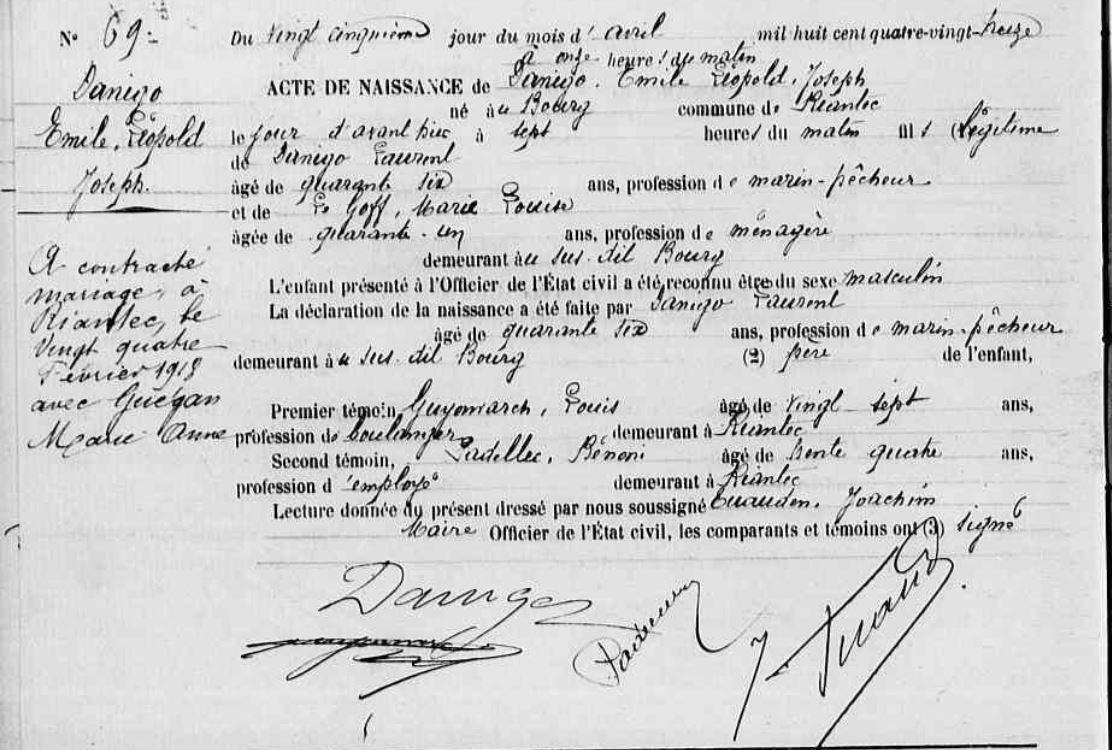 N° 69 :-
Danigo
Emile, Léopold
Joseph.
A contracté
mariage, à
Riantec, le
vingt quatre
Février 1918
avec Guégan
Marie Anne
Du vingt cinquième jour du mois d' avril mil huit cent quatre-vingt-treize
à onze heures du matin
ACTE DE NAISSANCE de Danigo, Emile Léopold, Joseph
né au Bourg commune de Riantec
le jour d'avant hier à sept heures du matin fils légitime
de Danigo Laurent
âgé de quarante six ans, profession de marin-pêcheur
et de Le Goff, Marie Louise
âgée de quarante-un ans, profession de ménagère
demeurant au sus-dit Bourg
L'enfant présenté à l'Officier de l'État civil a été reconnu être du sexe masculin
La déclaration de la naissance a été faite par Danigo Laurent
âgé de quarante six ans, profession de marin-pêcheur
demeurant au sus-dit Bourg (2) père de l'enfant,
Premier témoin, Guyomarch, Louis âgé de vingt sept ans,
profession de boulanger demeurant à Riantec
Second témoin, Padellec, Bénoni âgé de trente quatre ans,
profession d'employé demeurant à Riantec
Lecture donnée du présent dressé par nous soussigné Joachim
Maire Officier de l'État civil, les comparants et témoins ont (3) signé
Danigo